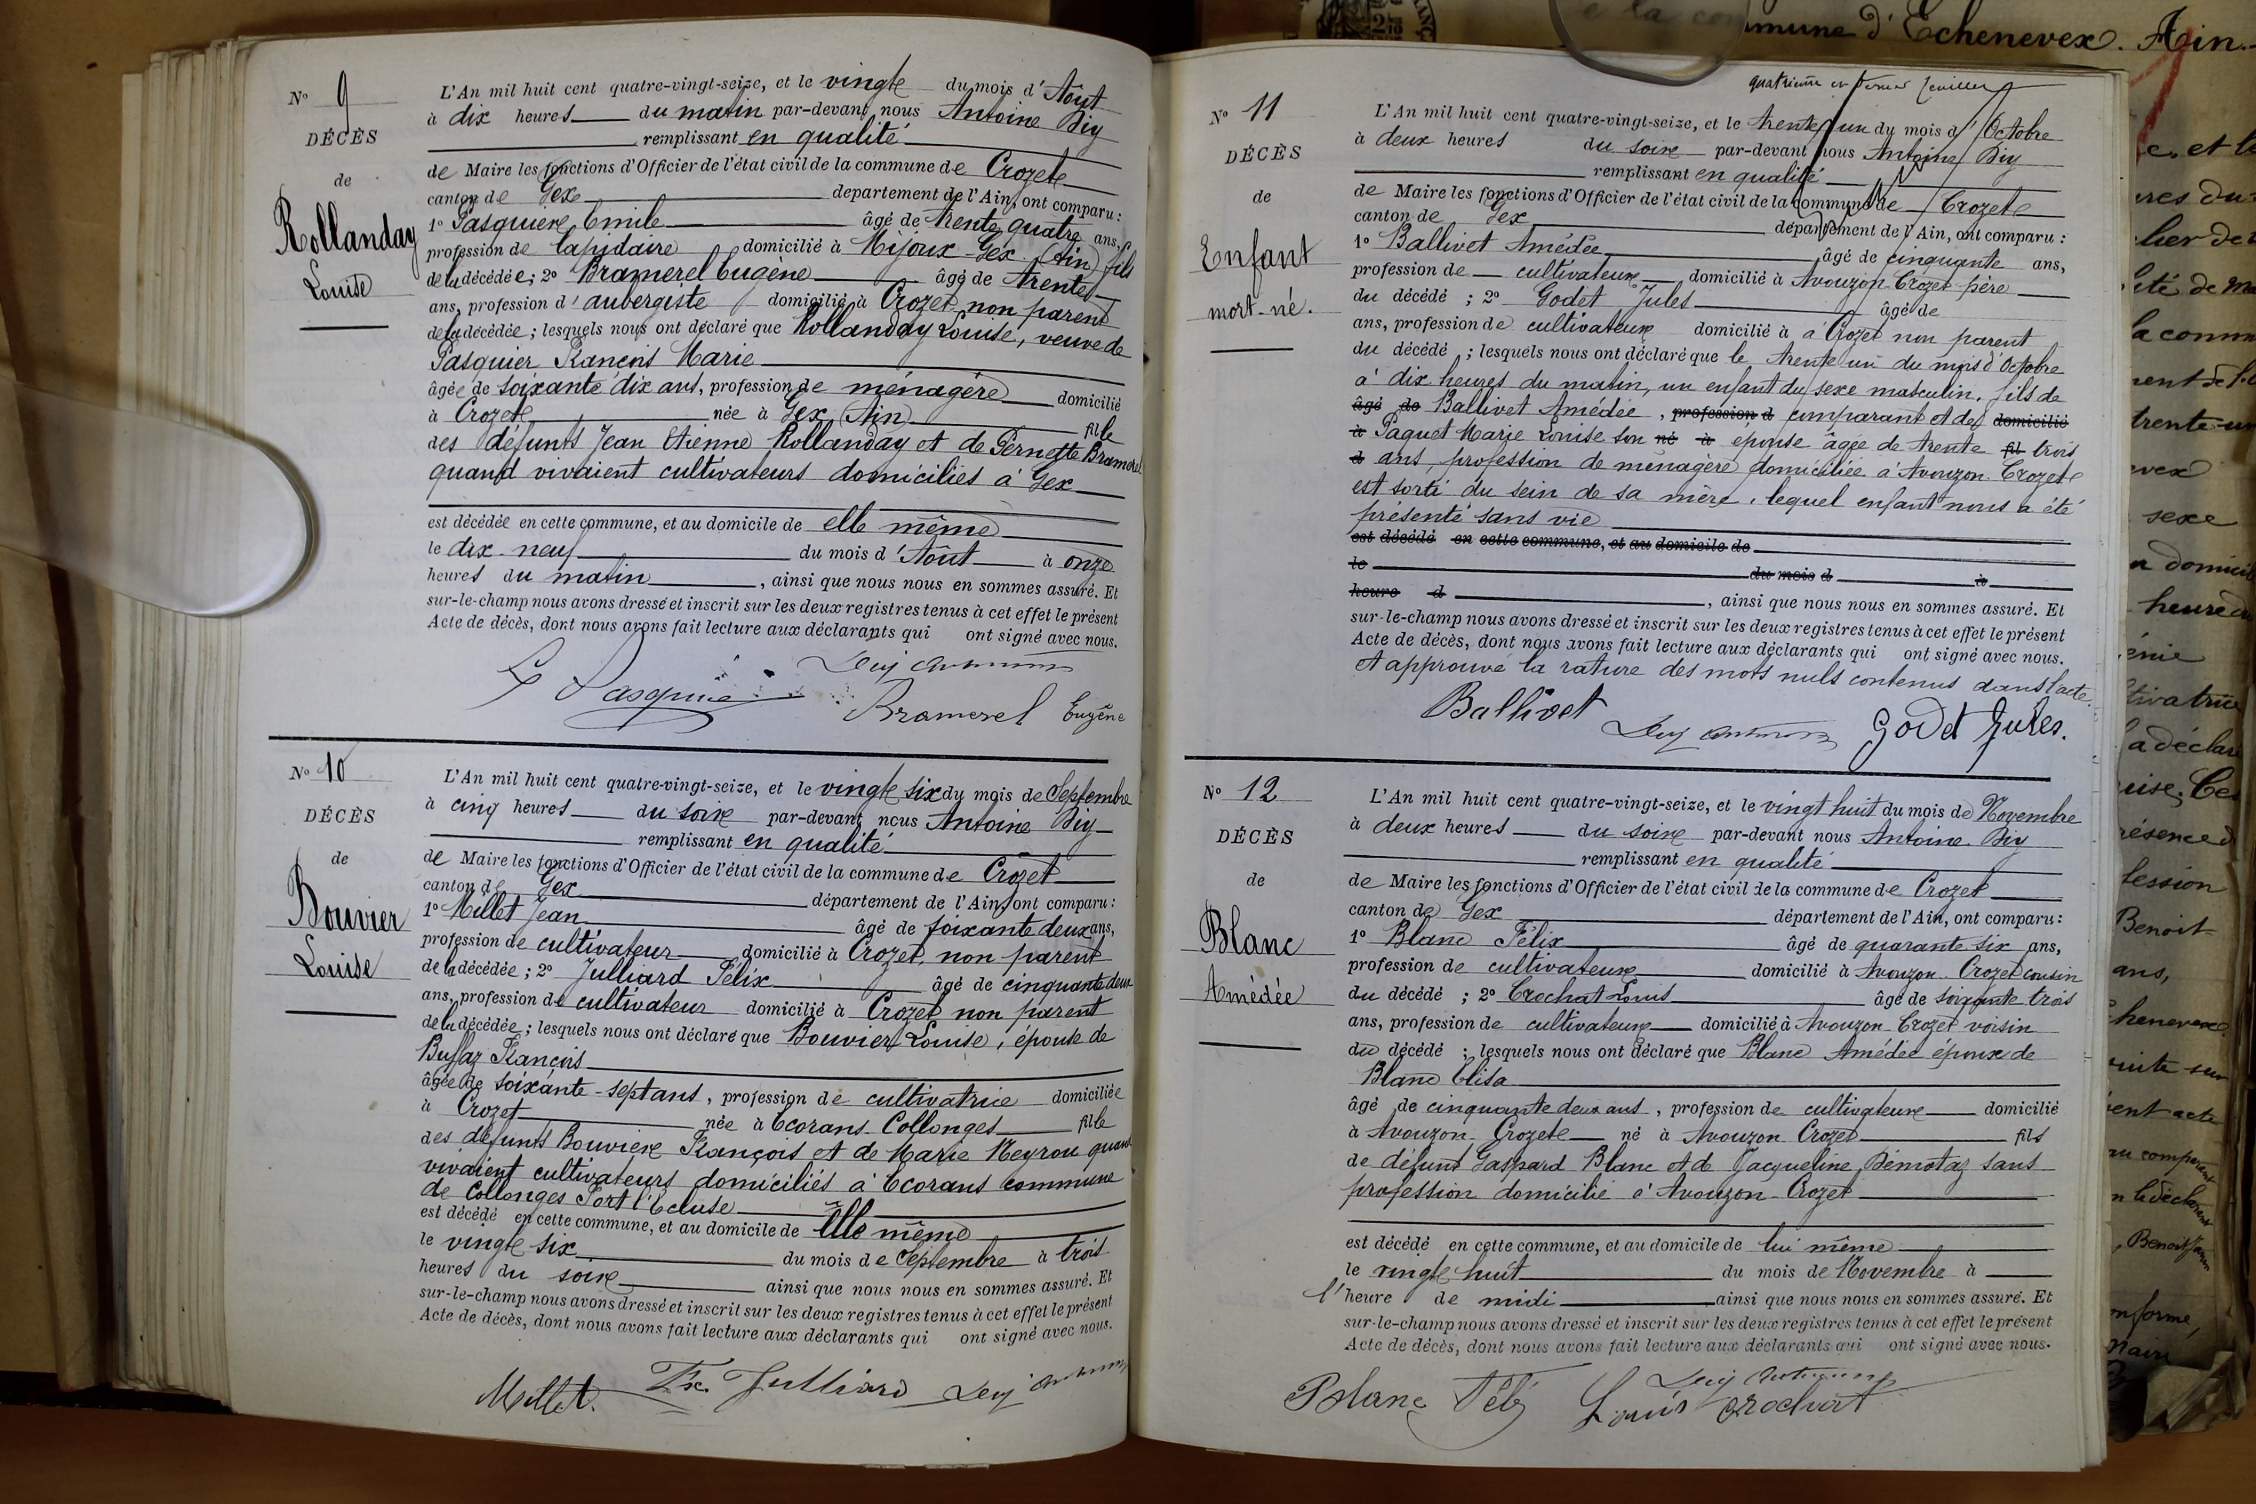 N° 9
DÉCÈS
de
Rollanday
Louise
L'An mil huit cent quatre-vingt-seize, et le vingt du mois d'Août
à dix heures du matin par-devant nous Antoine
remplissant en qualité
de Maire les fonctions d'Officier de l'état civil de la commune de Crozet
canton de Gex département de l'Ain, ont comparu :
1° Pasquier Emile âgé de trente quatre ans,
profession de lapidaire domicilié à Mijoux Gex (Ain) fils
de la décédée ; 2° Bramerel Eugène âgé de trente
ans, profession d'aubergiste domicilié à Crozet non parent
de la décédée ; lesquels nous ont déclaré que Rollanday Louise, veuve de
Pasquier François Marie
âgée de soixante dix ans, profession de ménagère domicilié
à Crozet née à Gex (Ain) fille
des défunts Jean Etienne Rollanday et de Pernette Bramerel
quand vivaient cultivateurs domiciliés à Gex
est décédée en cette commune, et au domicile de elle même
le dix-neuf du mois d'Août à onze
heures du matin, ainsi que nous nous en sommes assuré. Et
sur-le-champ nous avons dressé et inscrit sur les deux registres tenus à cet effet le présent
Acte de décès, dont nous avons fait lecture aux déclarants qui ont signé avec nous.
Pasquier
Bramerel Eugène
N° 10
DÉCÈS
de
Bouvier
Louise
L'An mil huit cent quatre-vingt-seize, et le vingt six du mois de Septembre
à cinq heures du soir par-devant nous Antoine
remplissant en qualité
de Maire les fonctions d'Officier de l'état civil de la commune de Crozet
canton de Gex département de l'Ain, ont comparu :
1° Millet Jean âgé de soixante deux ans,
profession de cultivateur domicilié à Crozet, non parent
de la décédée ; 2° Julliard Félix âgé de cinquante deux
ans, profession de cultivateur domicilié à Crozet non parent
de la décédée ; lesquels nous ont déclaré que Bouvier Louise, épouse de
Buffaz François
âgée de soixante-sept ans, profession de cultivatrice domiciliée
à Crozet née à Ecorans Collonges fille
des défunts Bouvier François et de Marie Neyrou quand
vivaient cultivateurs domiciliés à Ecorans commune
de Collonges Fort l'Ecluse
est décédé en cette commune, et au domicile de elle même
le vingt six du mois de Septembre à trois
heures du soir ainsi que nous nous en sommes assuré. Et
sur-le-champ nous avons dressé et inscrit sur les deux registres tenus à cet effet le présent
Acte de décès, dont nous avons fait lecture aux déclarants qui ont signé avec nous.
Millet. Fx. Julliard
mmune d'Echenevex. Ain.
quatrième et dernier feuillet
N° 11
DÉCÈS
de
Enfant
mort-né.
L'An mil huit cent quatre-vingt-seize, et le trente un du mois d'Octobre
à deux heures du soir par-devant nous Antoine
remplissant en qualité
de Maire les fonctions d'Officier de l'état civil de la commune de Crozet
canton de Gex département de l'Ain, ont comparu :
1° Ballivet Amédée âgé de cinquante ans,
profession de cultivateur domicilié à Avouzon Crozet père
du décédé ; 2° Godet Jules âgé de
ans, profession de cultivateur domicilié à à Crozet non parent
du décédé ; lesquels nous ont déclaré que le trente un du mois d'Octobre
à dix heures du matin, un enfant du sexe masculin, fils de
âgé de Ballivet Amédée, profession d comparant et de domicilié
à Paquet Marie Louise son né à épouse âgée de trente fil trois
d ans, profession de ménagère domiciliée à Avouzon Crozet
est sorti du sein de sa mère, lequel enfant nous a été
présenté sans vie
est décédé en cette commune, et au domicile de
le du mois d à
heure d, ainsi que nous nous en sommes assuré. Et
sur-le-champ nous avons dressé et inscrit sur les deux registres tenus à cet effet le présent
Acte de décès, dont nous avons fait lecture aux déclarants qui ont signé avec nous.
et approuvé la rature des mots nuls contenus dans l'acte.
Ballivet Godet Jules.
N° 12
DÉCÈS
de
Blanc
Amédée
L'An mil huit cent quatre-vingt-seize, et le vingt huit du mois de Novembre
à deux heures du soir par-devant nous Antoine
remplissant en qualité
de Maire les fonctions d'Officier de l'état civil de la commune de Crozet
canton de Gex département de l'Ain, ont comparu :
1° Blanc Félix âgé de quarante six ans,
profession de cultivateur domicilié à Avouzon Crozet cousin
du décédé ; 2° Crochat Louis âgé de soixante trois
ans, profession de cultivateur domicilié à Avouzon Crozet voisin
du décédé ; lesquels nous ont déclaré que Blanc Amédée époux de
Blanc Elisa
âgé de cinquante deux ans, profession de cultivateur domicilié
à Avouzon Crozet né à Avouzon Crozet fils
de défunt Gaspard Blanc et de Jacqueline Démotaz sans
profession domicilié à Avouzon-Crozet
est décédé en cette commune, et au domicile de lui même
le vingt huit du mois de Novembre à
l'heure de midi ainsi que nous nous en sommes assuré. Et
sur-le-champ nous avons dressé et inscrit sur les deux registres tenus à cet effet le présent
Acte de décès, dont nous avons fait lecture aux déclarants qui ont signé avec nous.
Blanc Félix
Louis Crochat